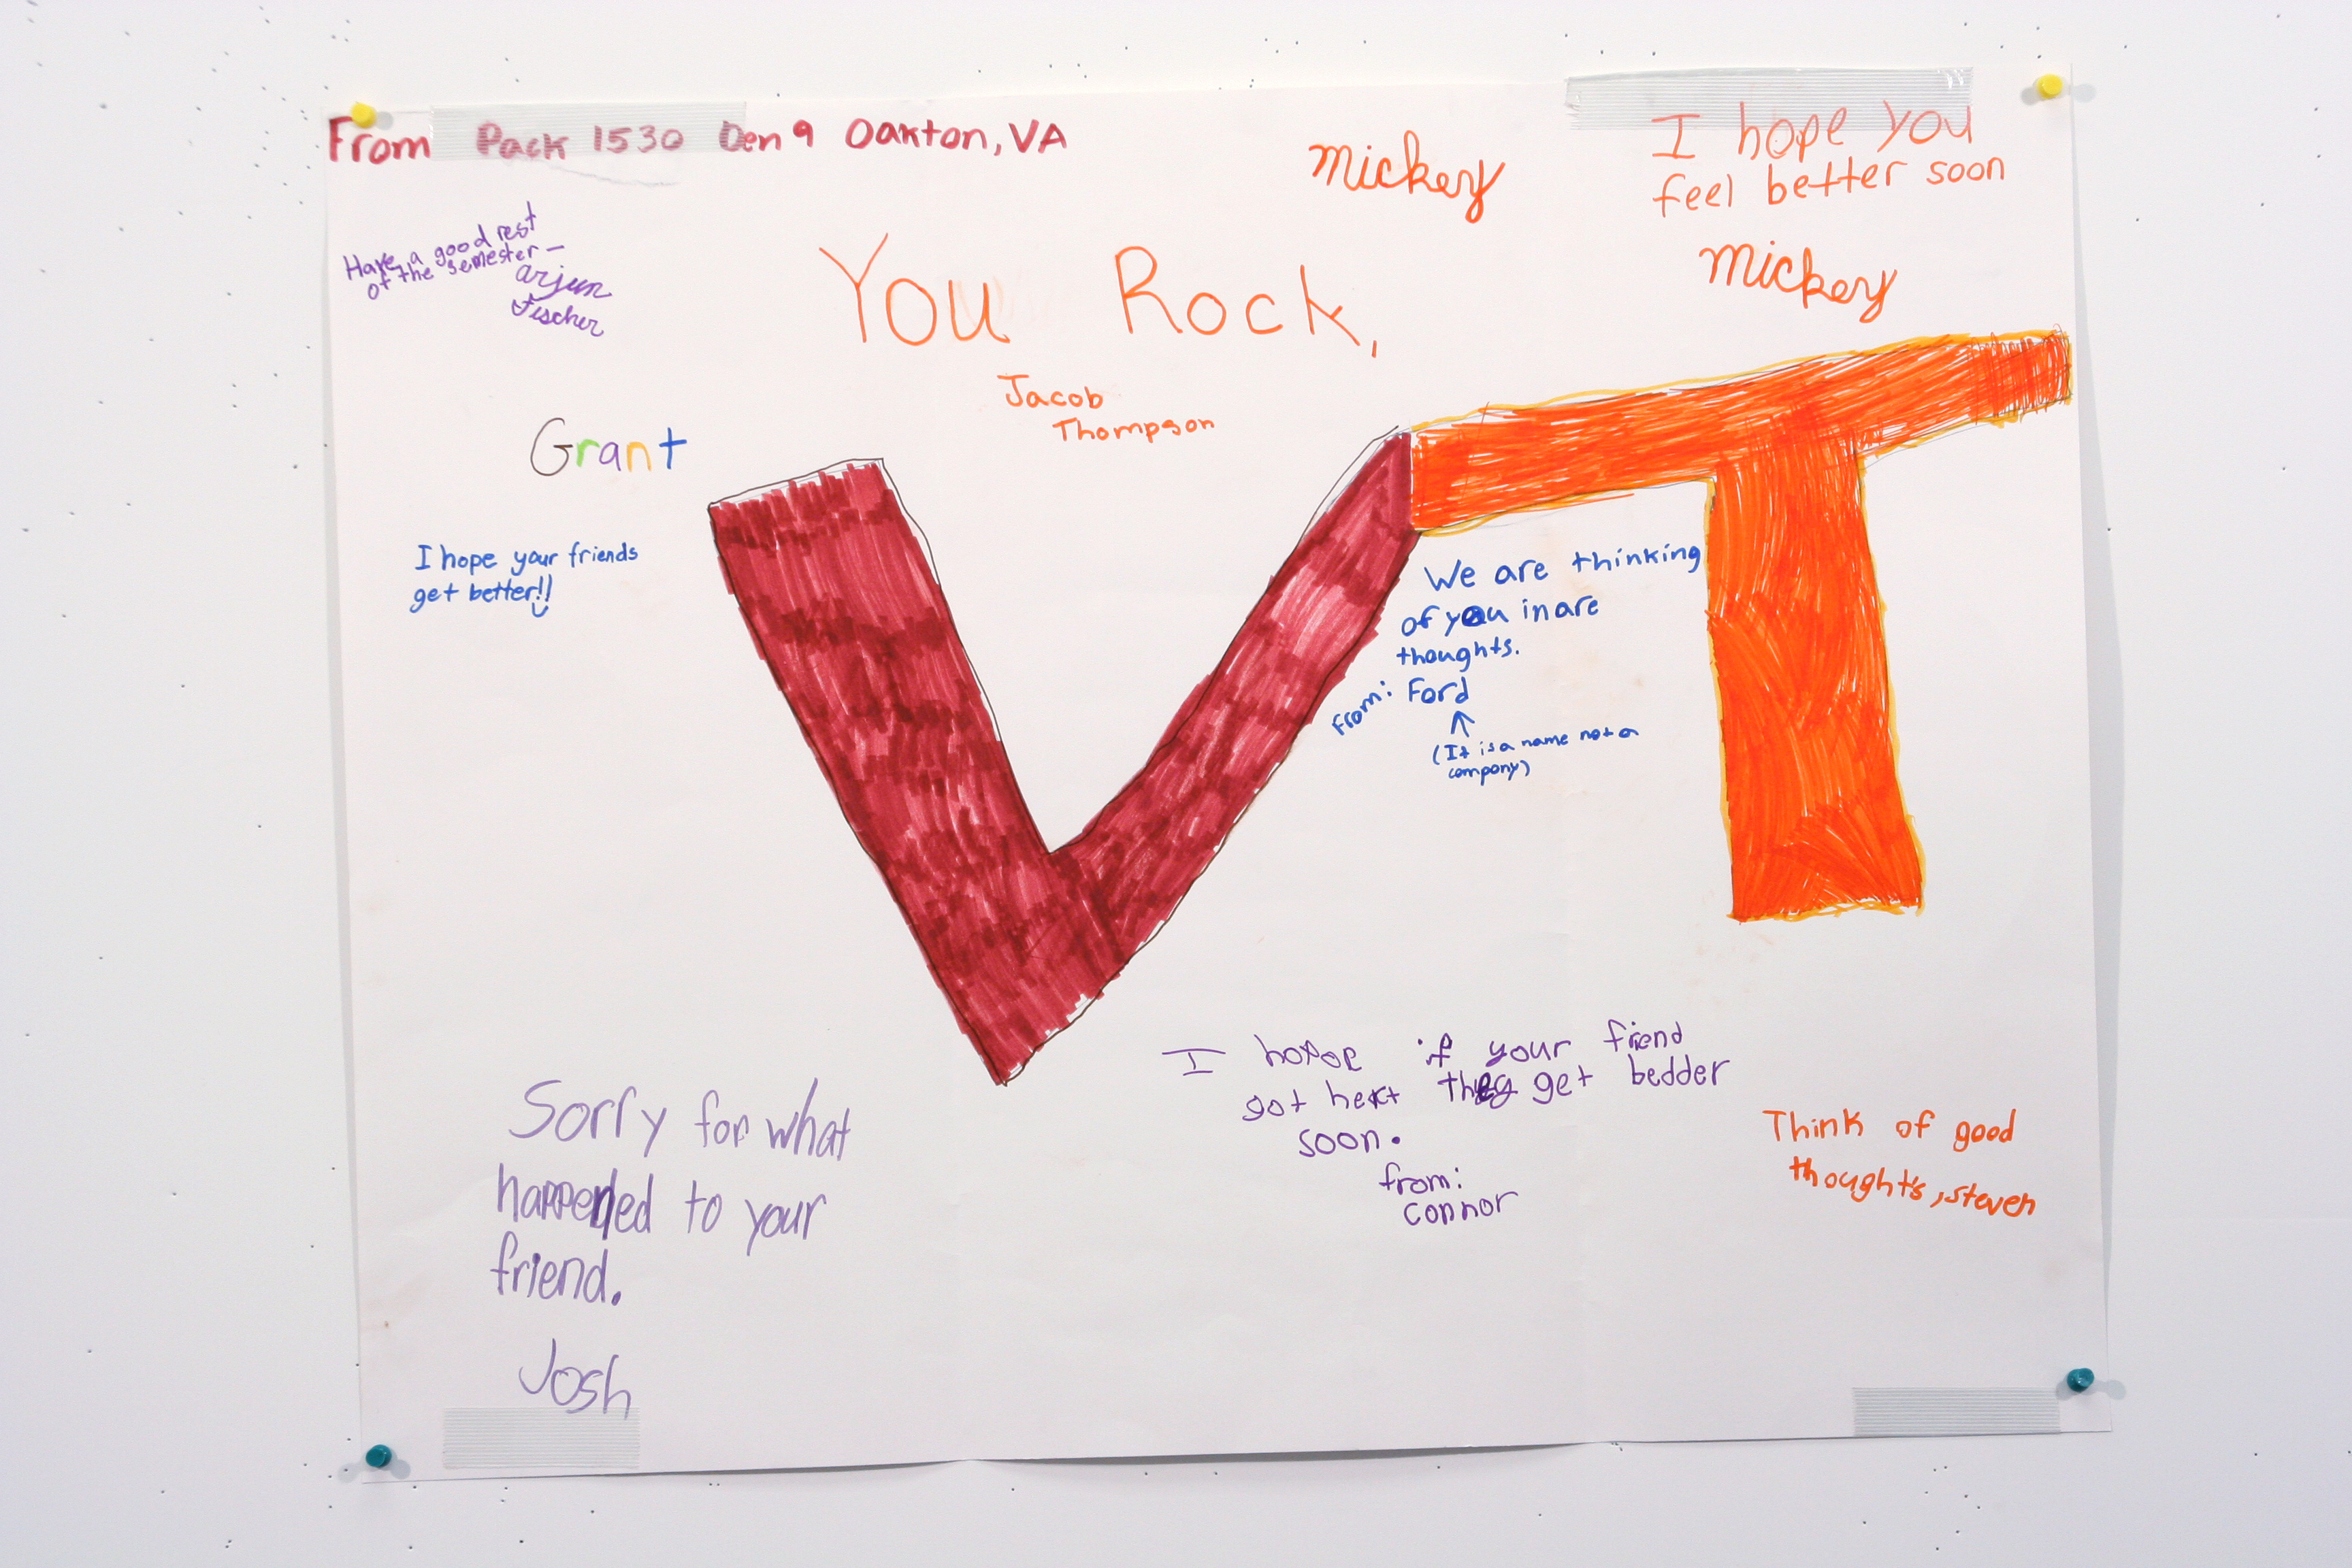 From Pack 1530 Den 9 Oakton, VA
Mickey
I hope you
feel better soon
Mickey
Have a good rest
of the semester –
arjun
Fischer
You Rock,
Jacob
Thompson
Grant
I hope your friends
get better!!
VT
We are thinking
of you in are
thoughts.
From: Ford
(It is a name not a
company)
I hopoe if your friend
got hert they get bedder
soon.
from:
Connor
Sorry for what
happended to your
friend.
Josh
Think of good
thoughts, steven